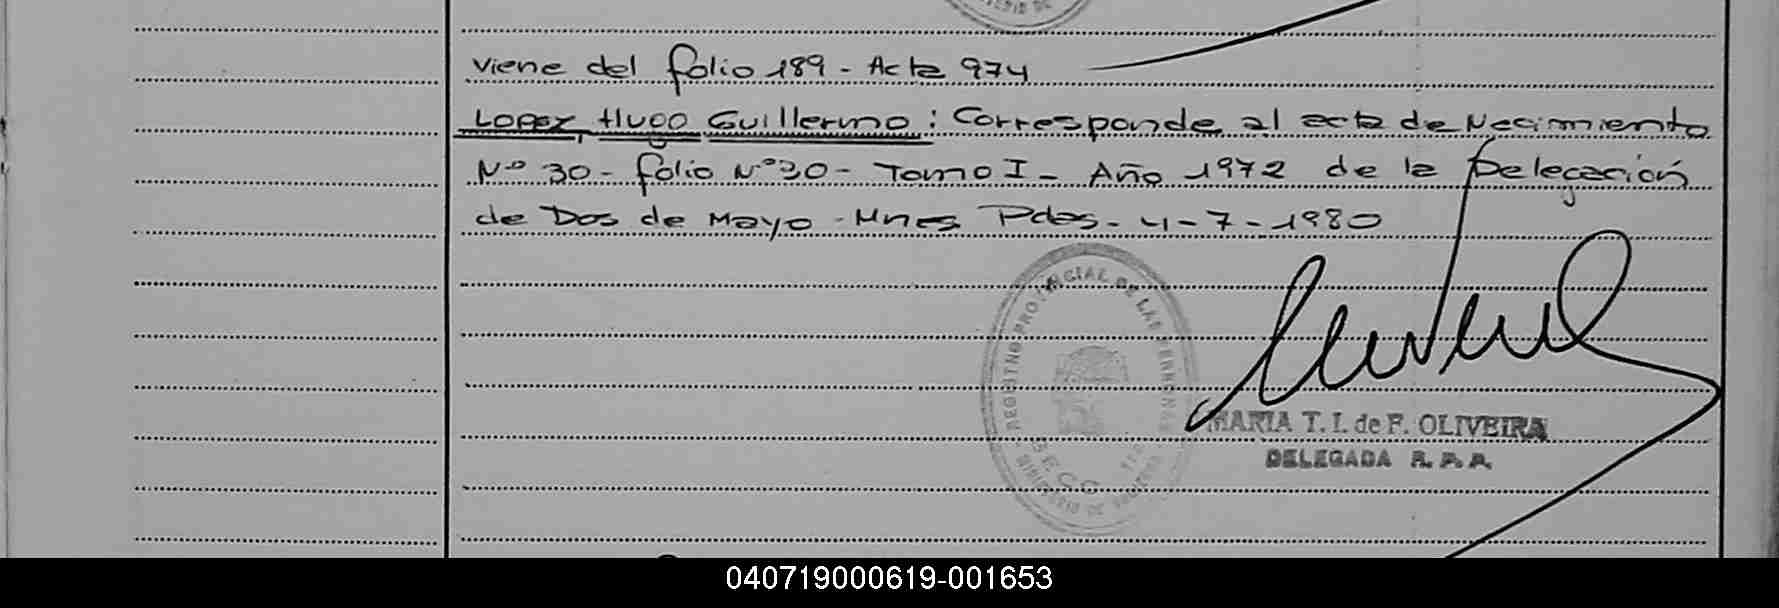 viene del folio 189 - Acta 974
LOPEZ, Hugo Guillermo: Corresponde al acta de Nacimiento
Nº 30 - folio Nº 30 - Tomo I - Año 1972 de la Delegación
de Dos de Mayo - Mnes Pdas - 4 - 7 - 1980
REGISTRO PROVINCIAL DE LAS PERSONAS
MARIA T. I. de F. OLIVEIRA
DELEGADA R. P. P.
040719000619-001653